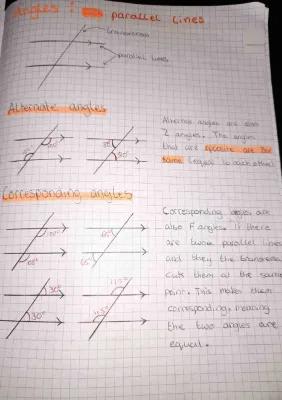 Angles : parallel lines
transversal
parallel lines
Alternate angles
Alternate angles are also
Z angles. The angles
that are opposite are the
same (equal to each other)
Corresponding angles
Corresponding angles are
also F angles. If there
are two parallel lines
and they the transversal
cuts them at the same
point. This makes them
corresponding, meaning
the two angles are
equal.
30°
30°
115°
115°